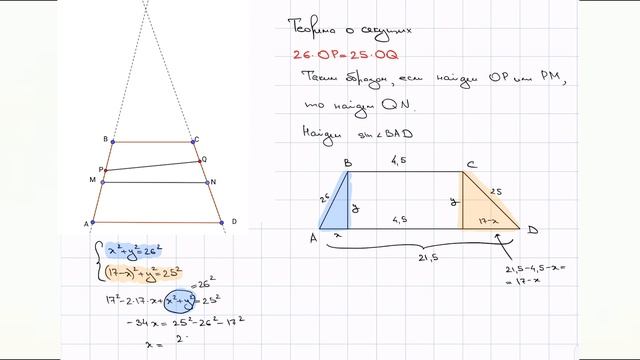 Теорема о секущих
26·OP=25·OQ
Таким образом, если найдём OP или PM,
то найдём QN.
Найдём sin∠BAD
B
C
P
Q
M
N
A
D
B
4,5
C
26
y
y
25
A
x
4,5
17-x
D
21,5
21,5-4,5-x=
=17-x
x²+y²=26²
(17-x)²+y²=25²
=26²
17²-2·17·x+x²+y²=25²
-34x=25²-26²-17²
x=
2